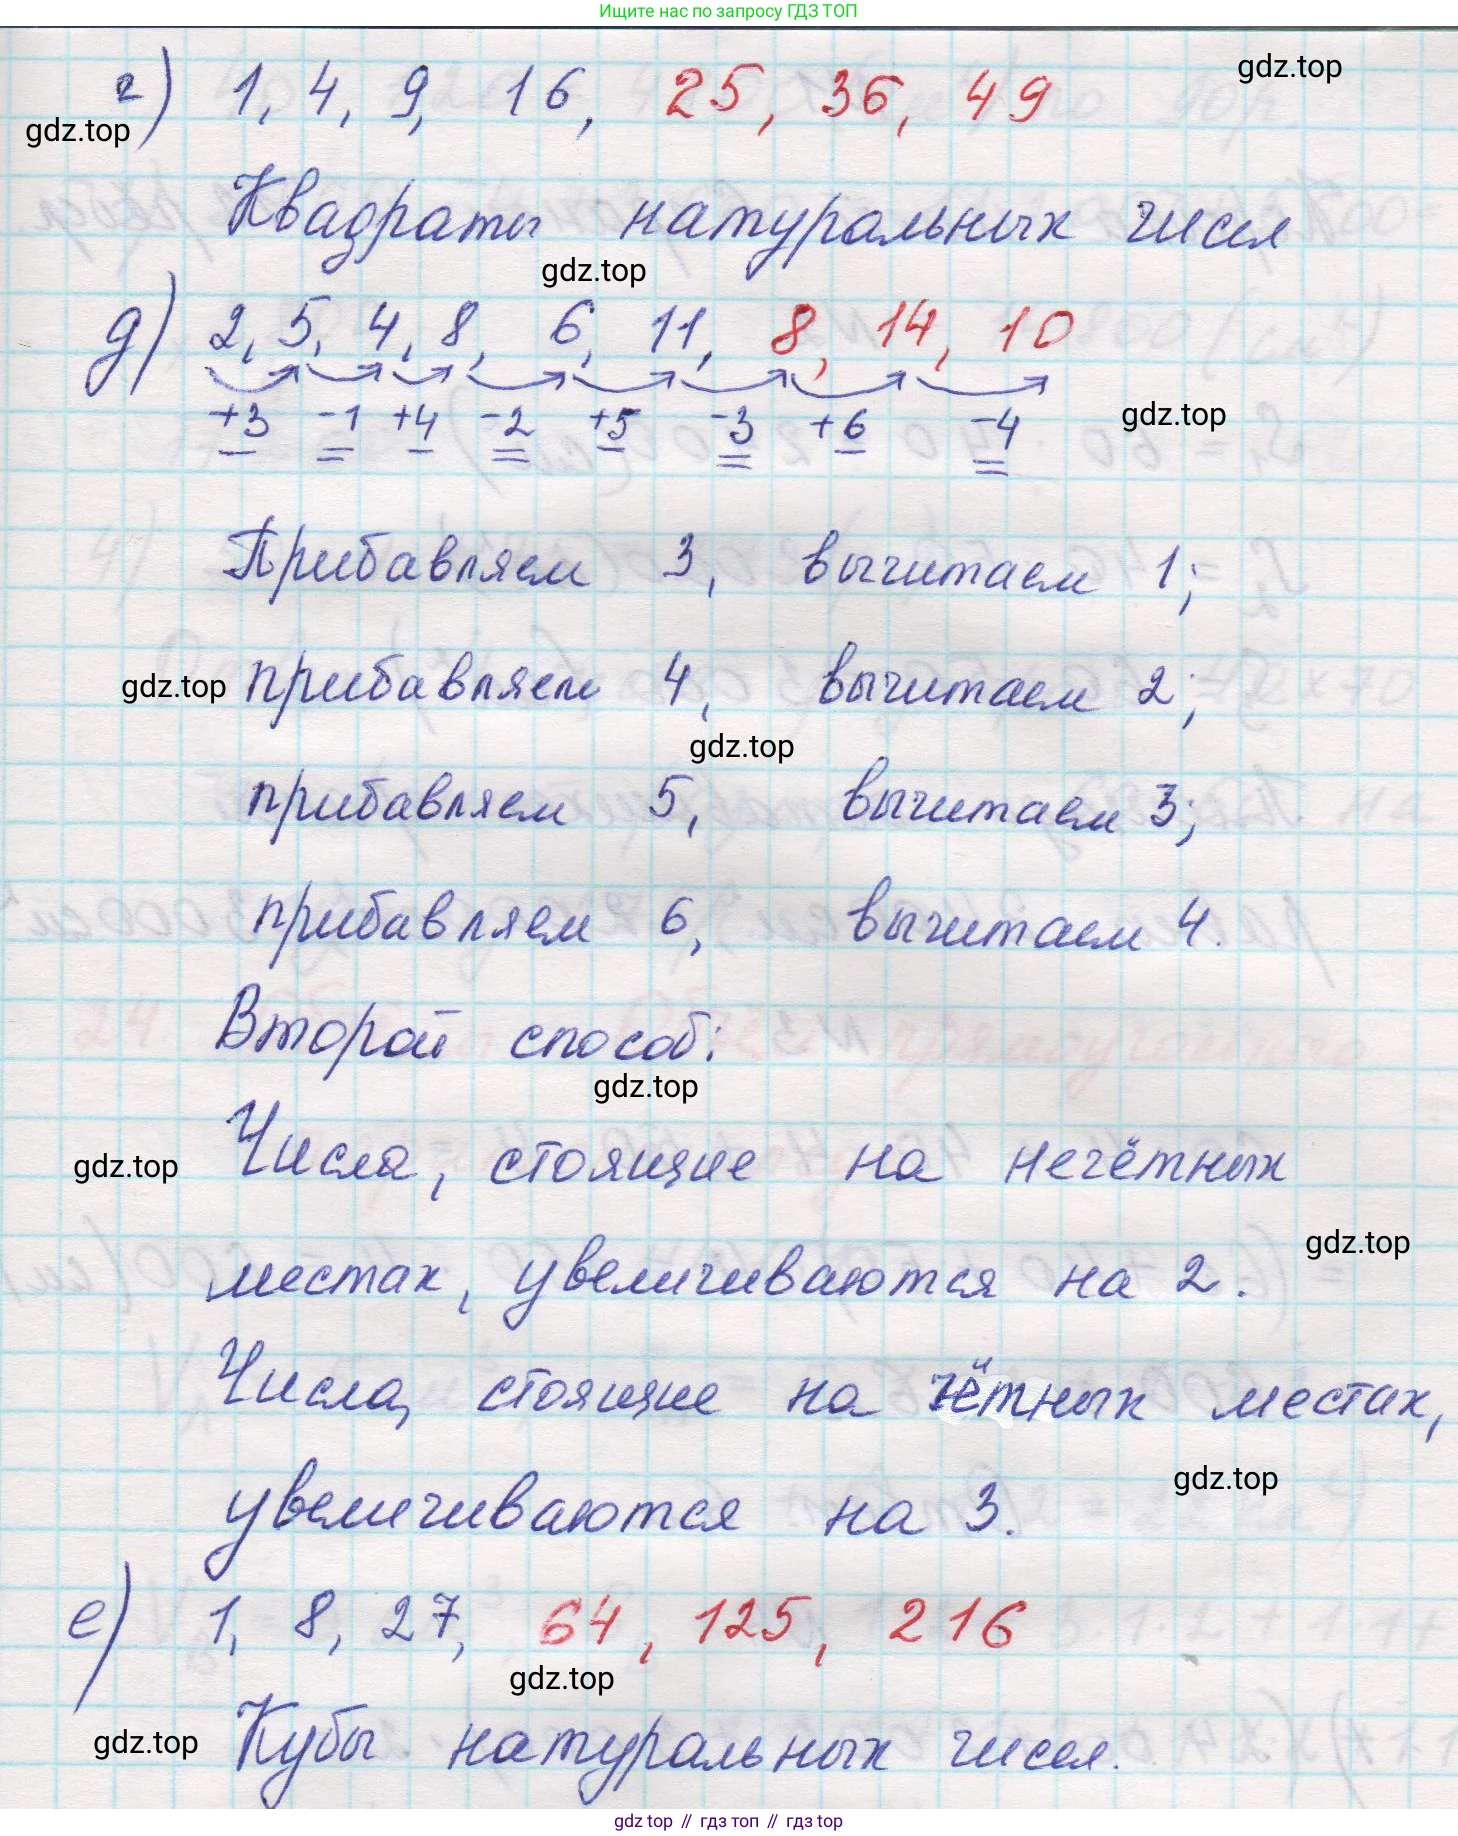 Ищите нас по запросу ГДЗ ТОП
gdz.top
г) 1, 4, 9, 16, 25, 36, 49
gdz.top
Квадраты натуральных чисел
gdz.top
д) 2, 5, 4, 8, 6, 11, 8, 14, 10
+3 -1 +4 -2 +5 -3 +6 -4
gdz.top
Прибавляем 3, вычитаем 1;
gdz.top прибавляем 4, вычитаем 2;
gdz.top
прибавляем 5, вычитаем 3;
прибавляем 6, вычитаем 4.
Второй способ:
gdz.top
gdz.top Числа, стоящие на нечётных
gdz.top
местах, увеличиваются на 2.
Числа, стоящие на чётных местах,
gdz.top
увеличиваются на 3.
е) 1, 8, 27, 64, 125, 216
gdz.top
gdz.top Кубы натуральных чисел.
gdz top // гдз топ // гдз top